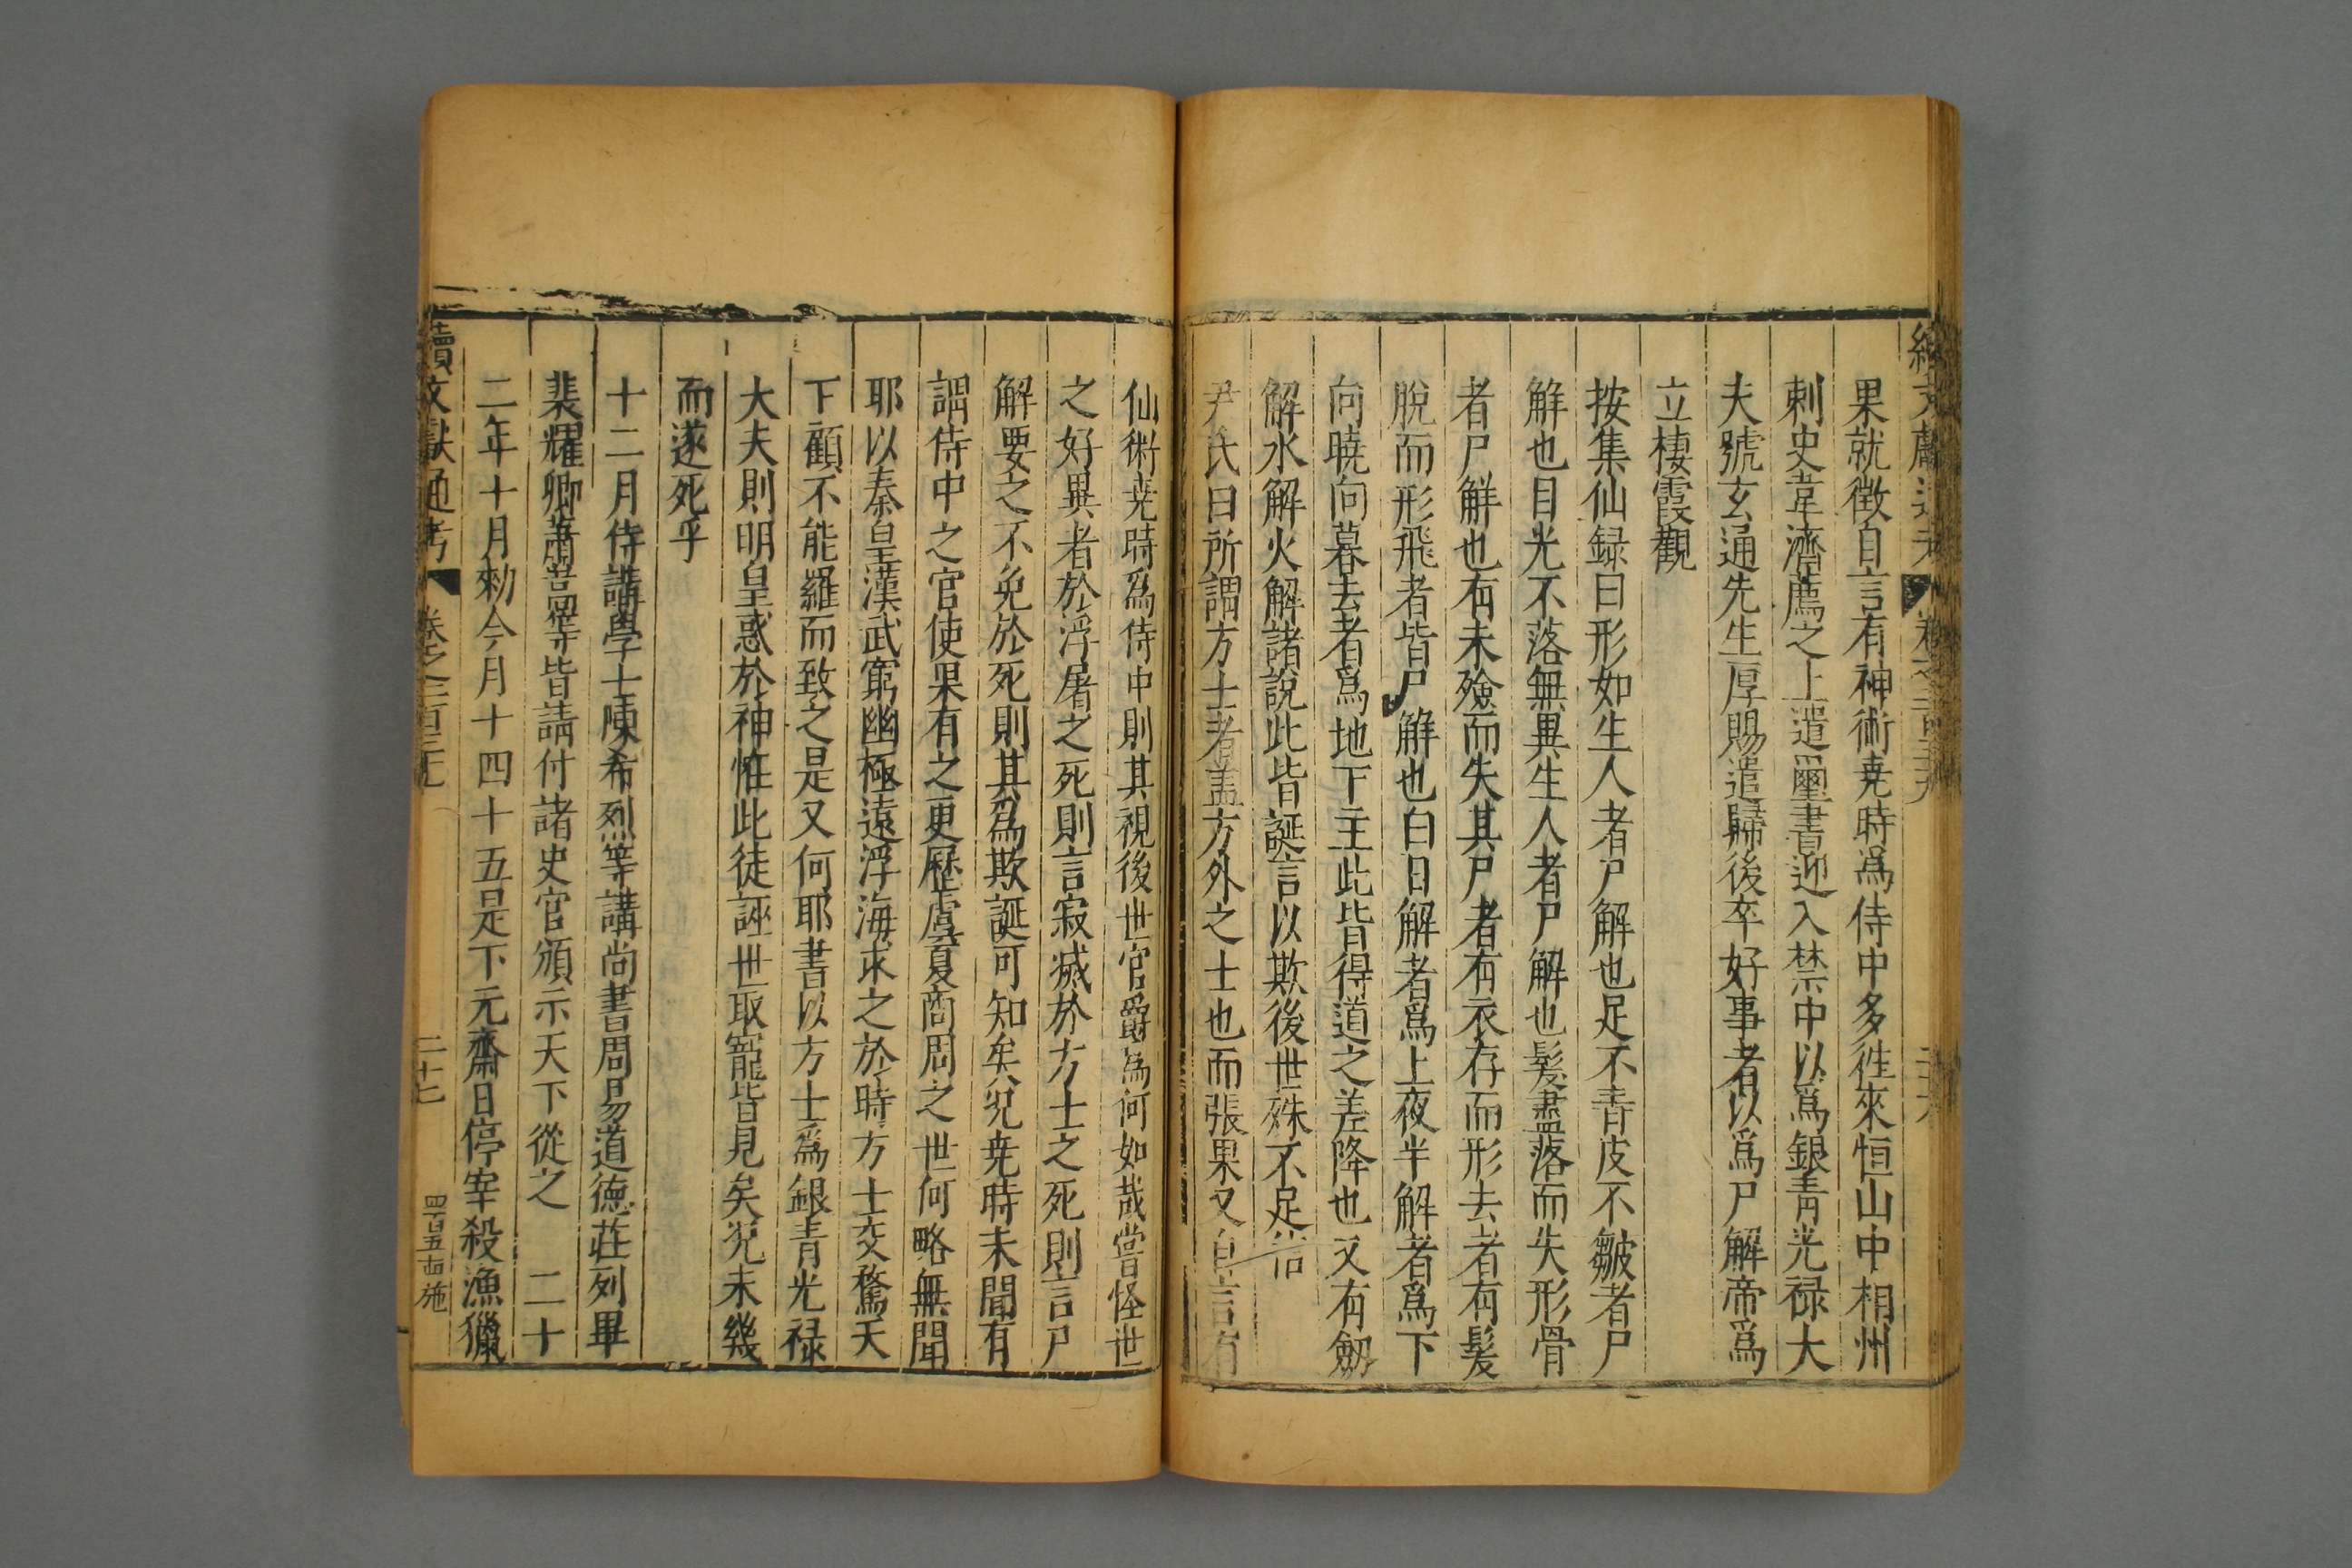 果就徵自言有神術堯時爲侍中多徃來恒山中相州
刺史韋濟薦之上遣璽書迎入禁中以爲銀青光禄大
夫號玄通先生厚賜遣歸後卒好事者以爲尸解帝爲
立棲霞觀
按集仙録曰形如生人者尸解也足不青皮不皺者尸
解也目光不落無異生人者尸解也髮盡落而失形骨
者尸解也有未殮而失其尸者有衣存而形去者有髮
脫而形飛者皆尸解也白日解者爲上夜半解者爲下
向曉向暮去者爲地下主此皆得道之差降也又有劒
解水解火解諸說此皆誕言以欺後世殊不足信
尹氏曰所謂方士者盖方外之士也而張果又自言有
仙術堯時爲侍中則其視後世官爵爲何如哉嘗怪世
之好異者於浮屠之死則言寂滅於方士之死則言尸
解要之不免於死則其爲欺誕可知矣况堯時未聞有
謂侍中之官使果有之更歷虞夏商周之世何略無聞
耶以秦皇漢武窮幽極遠浮海求之於時方士交騖天
下顧不能羅而致之是又何耶書以方士爲銀青光禄
大夫則明皇惑於神怪此徒誣世取寵皆見矣况未幾
而遂死乎
十二月侍講學士陳希烈等講尚書周易道德莊列畢
裴耀卿蕭嵩等皆請付諸史官頒示天下從之 二十
二年十月勑今月十四十五是下元齋日停宰殺漁獵
續文獻通考 卷之二百三 二十七